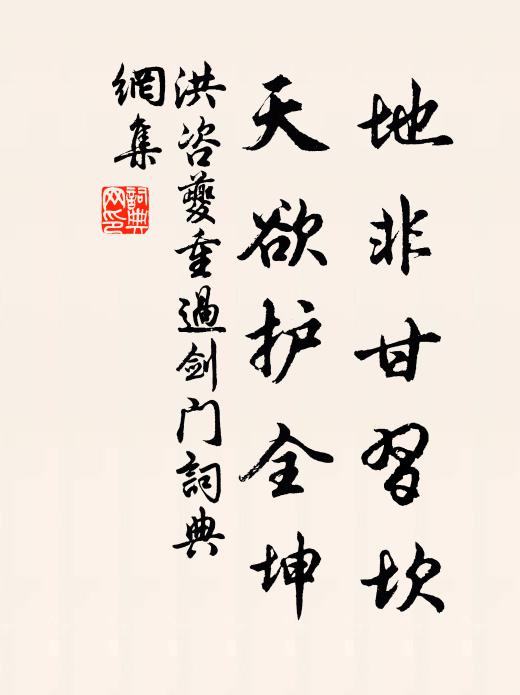 地非甘習坎
天欲护全坤
洪咨夔重過剑门詞典
網集
詞典
网印